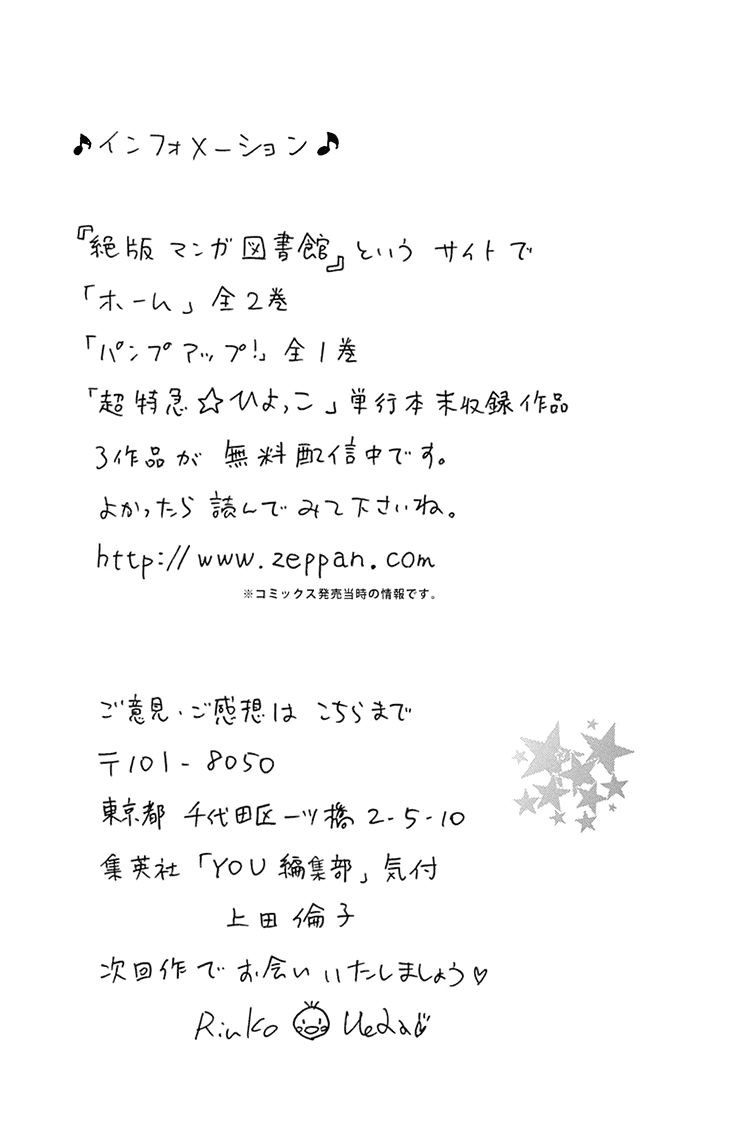 ♪インフォメーション♪
『絶版マンガ図書館』という サイトで
「ホーム」全2巻
「パンプアップ!」全1巻
「超特急☆ひよっこ」単行本未収録作品
3作品が 無料配信中です。
よかったら 読んでみて下さいね。
http://www.zeppan.com
※コミックス発売当時の情報です。
ご意見・ご感想は こちらまで
〒101-8050
東京都 千代田区一ツ橋 2-5-10
集英社「YOU編集部」気付
上田倫子
次回作で お会いいたしましょう♡
Rinko Ueda